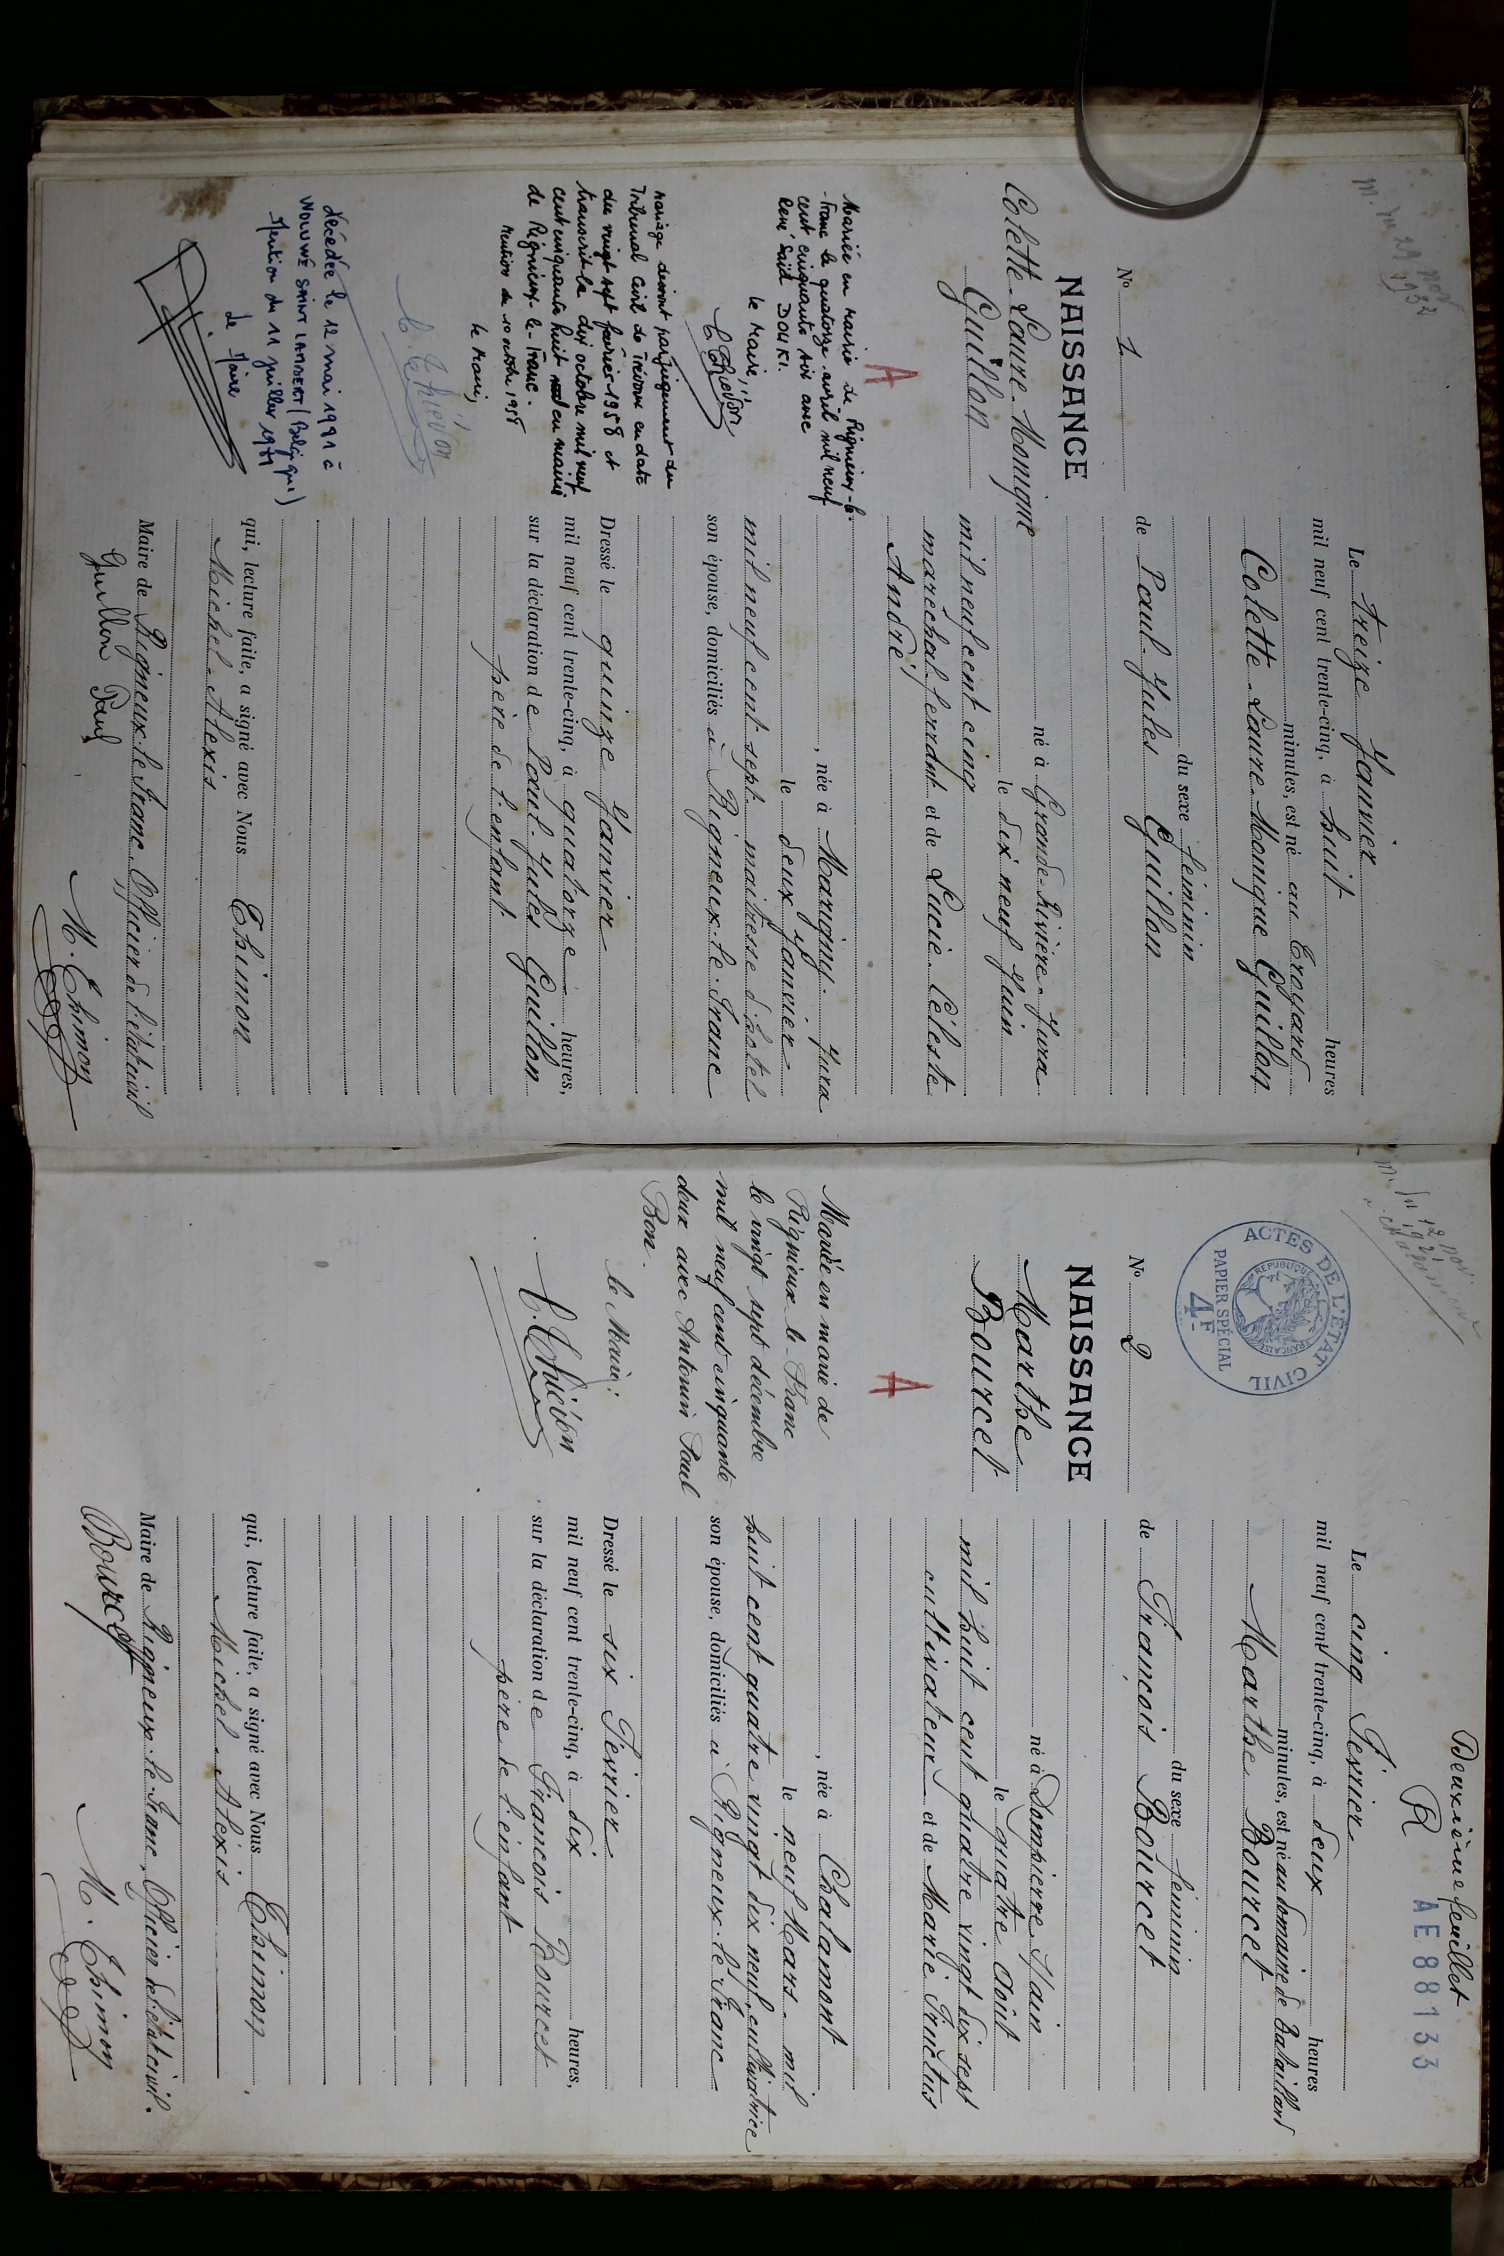 N° 1
NAISSANCE
Colette-Laure-Monique
Guillon
A
Mariée en Mairie de Rignieux-le
-Franc le quatorze avril mil neuf
cent cinquante six avec
René Saïd DOUKI.
le Maire,
C. Thiévon
Mariage dissout par jugement du
Tribunal Civil de Trévoux en date
du vingt sept février 1958 et
transcrit le dix octobre mil neuf
cent cinquante huit en mairie
de Rignieux-le-Franc.
Mention du 10 octobre 1958
le Maire,
C. Thiévon
décédée le 12 mai 1981 à
WOLUWÉ SAINT LAMBERT (Belgique)
Mention du 11 juillet 1981
Le Maire
Le treize Janvier
mil neuf cent trente-cinq, à huit heures
minutes, est né au Croyard
Colette-Laure-Monique Guillon
du sexe féminin
de Paul-Jules Guillon
né à Grande-Rivière-Jura
le dix neuf Juin
mil neuf cent cinq
maréchal ferrant et de Lucie-Céleste
André
, née à Marigny-Jura
le deux Janvier
mil neuf cent sept maîtresse d'hôtel
son épouse, domiciliés à Rigneux-le-Franc
Dressé le quinze Janvier
mil neuf cent trente-cinq, à quatorze heures,
sur la déclaration de Paul Jules Guillon
père de l'enfant
qui, lecture faite, a signé avec Nous Thimon
Michel-Alexis
Maire de Rigneux-le-Franc, Officier de l'état civil
Guillon Paul
M. Thimon
Deuxième feuillet
R
AE88133
ACTES DE L'ÉTAT CIVIL
REPUBLIQUE FRANÇAISE
PAPIER SPÉCIAL
4F
N° 2
NAISSANCE
Marthe
Bourcet
A
Mariée en mairie de
Rignieux-le-Franc
le vingt sept décembre
mil neuf cent cinquante
deux avec Antonin Paul
Bon.
le Maire:
C. Thiévon
Le cinq Février
mil neuf cent trente-cinq, à deux heures
minutes, est né au domaine de Bataillard
Marthe Bourcet
du sexe féminin
de François Bourcet
né à Dompierre s/ain
le quatre Août
mil huit cent quatre vingt dix sept
cultivateur et de Marie Fructus
, née à Chalamont
le neuf Mars mil
huit cent quatre vingt dix neuf, cultivatrice
son épouse, domiciliés à Rigneux-le-Franc
Dressé le six Février
mil neuf cent trente-cinq, à dix heures,
sur la déclaration de Francois Bourcet
père de l'enfant
qui, lecture faite, a signé avec Nous Thimon
Michel-Alexis
Maire de Rigneux-le-Franc, Officier de l'état civil.
Bourcet
M. Thimon